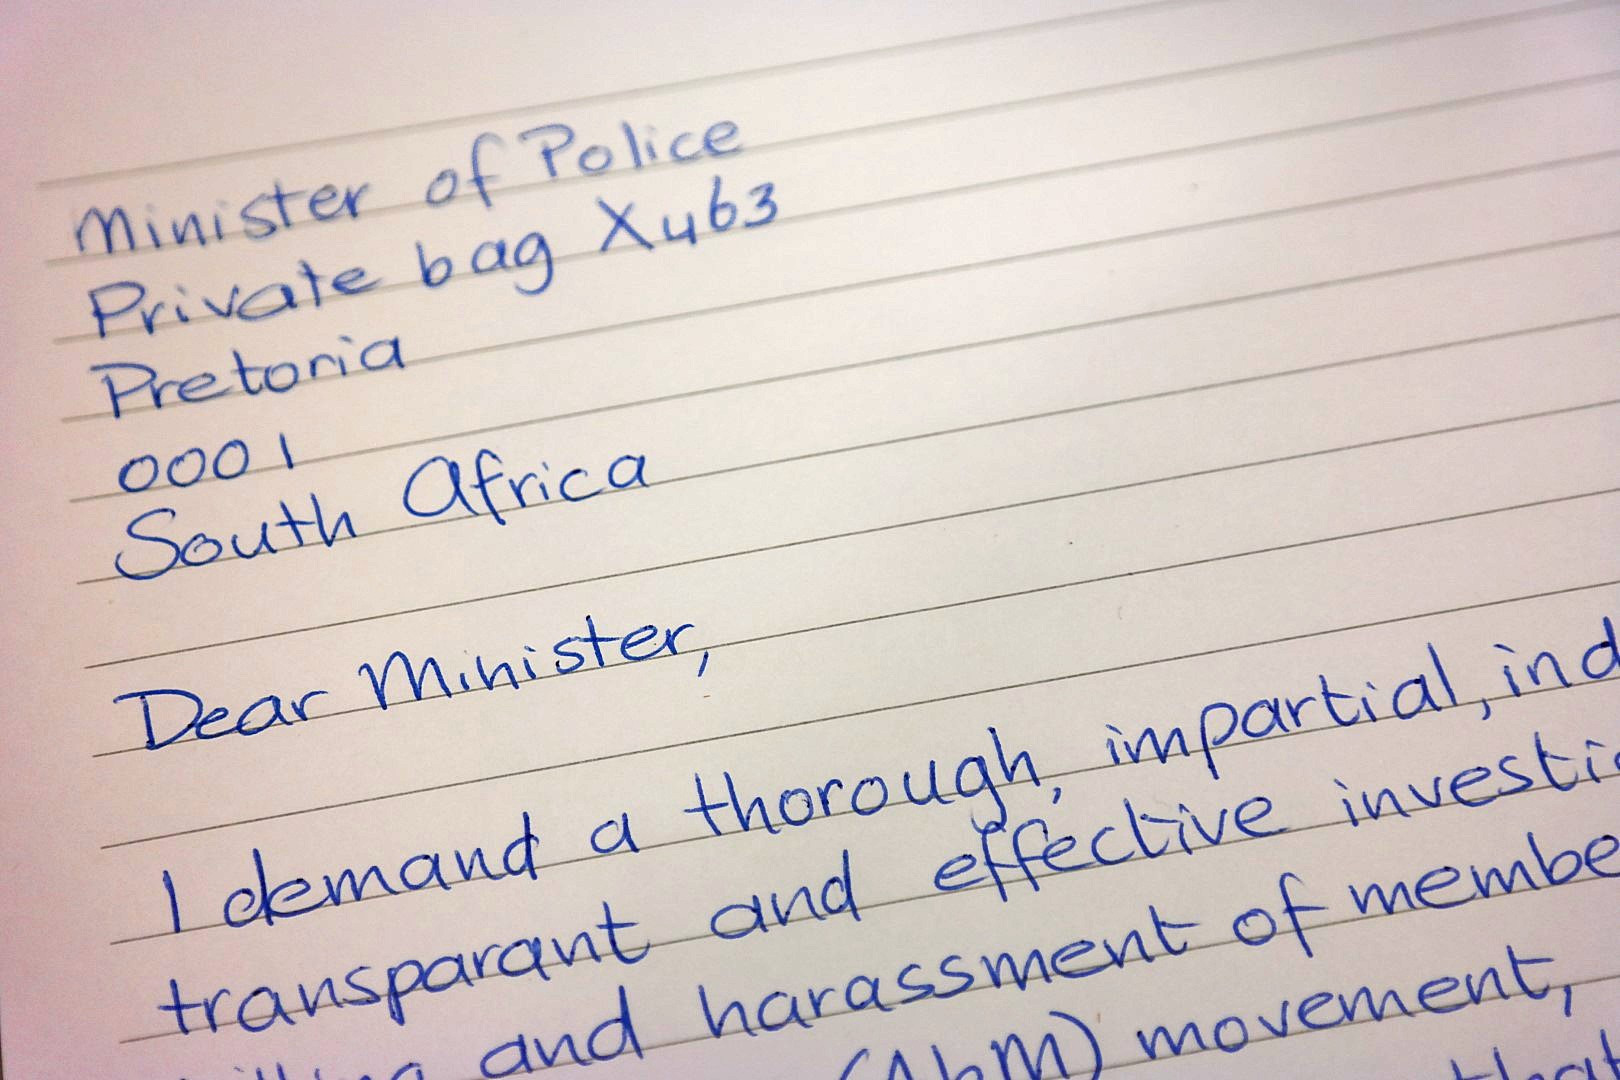 Minister of Police
Private bag X463
Pretoria
0001
South Africa
Dear Minister,
I demand a thorough, impartial, ind
transparant and effective investi
and harassment of membe
(AbM) movement,
that